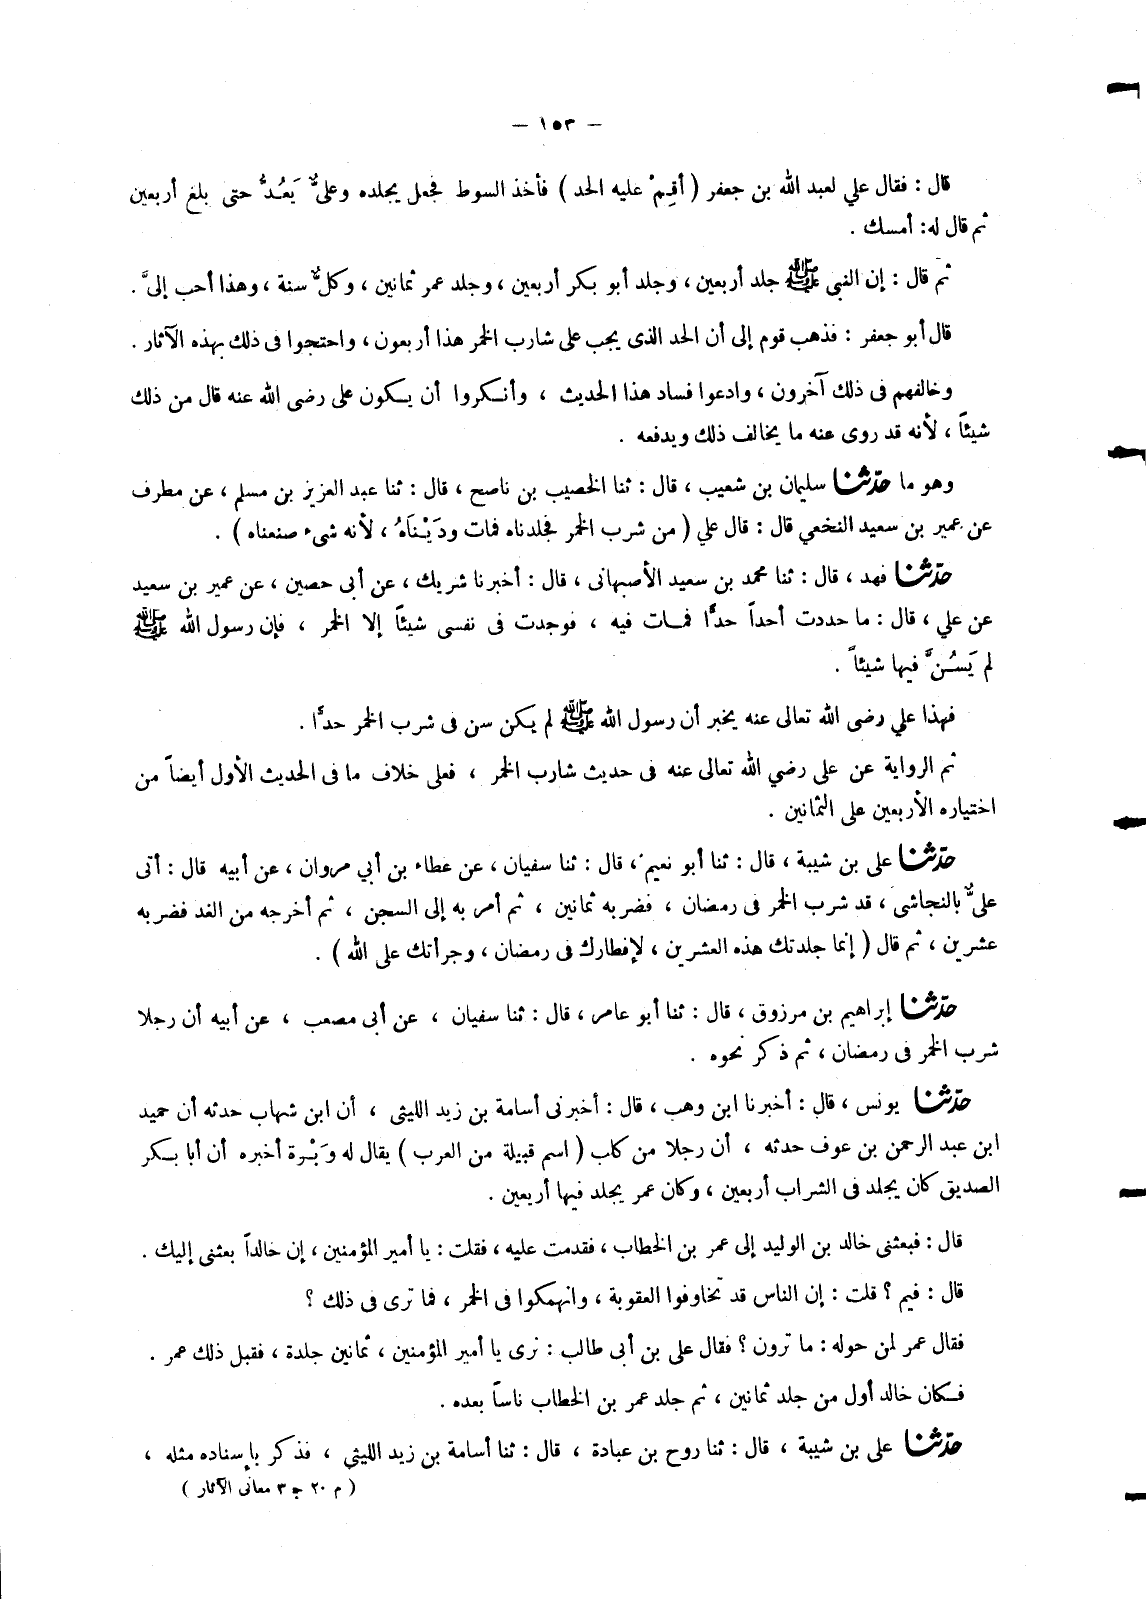 — ١٥٣ —
قال : فقال علي لعبد الله بن جعفر ( أقِمْ عليه الحد ) فأخذ السوط فجعل يجلده وعليٌّ يَعُدُّ حتى بلغ أربعين
ثم قال له: أمسك .
ثم قال : إن النبي ﷺ جلد أربعين ، وجلد أبو بكر أربعين ، وجلد عمر ثمانين ، وكلٌّ سنة ، وهذا أحب إلىَّ .
قال أبو جعفر : فذهب قوم إلى أن الحد الذى يجب على شارب الخمر هذا أربعون ، واحتجوا فى ذلك بهذه الآثار .
وخالفهم فى ذلك آخرون ، وادعوا فساد هذا الحديث ، وأنكروا أن يكون على رضى الله عنه قال من ذلك
شيئاً ، لأنه قد روى عنه ما يخالف ذلك ويدفعه .
وهو ما حدّثنا سليمان بن شعيب ، قال : ثنا الخصيب بن ناصح ، قال : ثنا عبد العزيز بن مسلم ، عن مطرف
عن عمير بن سعيد النخعي قال : قال علي ( من شرب الخمر فجلدناه فمات ودَيْنَاهُ ، لأنه شىء صنعناه ) .
حدّثنا فهد ، قال : ثنا محمد بن سعيد الأصبهانى ، قال : أخبرنا شريك ، عن أبى حصين ، عن عمير بن سعيد
عن علي ، قال : ما حددت أحداً حدًّا فمات فيه ، فوجدت فى نفسى شيئاً إلا الخمر ، فإن رسول الله ﷺ
لم يَسُنَّ فيها شيئاً .
فهذا علي رضى الله تعالى عنه يخبر أن رسول الله ﷺ لم يكن سن فى شرب الخمر حدًّا .
ثم الرواية عن على رضي الله تعالى عنه فى حديث شارب الخمر ، فعلى خلاف ما فى الحديث الأول أيضاً من
اختياره الأربعين على الثمانين .
حدّثنا على بن شيبة ، قال : ثنا أبو نعيم ، قال : ثنا سفيان ، عن عطاء بن أبي مروان ، عن أبيه قال : أتى
علىٌّ بالنجاشى ، قد شرب الخمر فى رمضان ، فضربه ثمانين ، ثم أمر به إلى السجن ، ثم أخرجه من الغد فضربه
عشرين ، ثم قال ( إنما جلدتك هذه العشرين ، لإفطارك فى رمضان ، وجرأتك على الله ) .
حدّثنا إبراهيم بن مرزوق ، قال : ثنا أبو عامر ، قال : ثنا سفيان ، عن أبى مصعب ، عن أبيه أن رجلا
شرب الخمر فى رمضان ، ثم ذكر نحوه .
حدّثنا يونس ، قال : أخبرنا ابن وهب ، قال : أخبرنى أسامة بن زيد الليثى ، أن ابن شهاب حدثه أن حميد
ابن عبد الرحمن بن عوف حدثه ، أن رجلا من كاب ( اسم قبيلة من العرب ) يقال له وَبْرة أخبره أن أبا بكر
الصديق كان يجلد فى الشراب أربعين ، وكان عمر يجلد فيها أربعين .
قال : فبعثنى خالد بن الوليد إلى عمر بن الخطاب ، فقدمت عليه ، فقلت : يا أمير المؤمنين ، إن خالداً بعثنى إليك .
قال : فيم ؟ قلت : إن الناس قد تخاوفوا العقوبة ، وانهمكوا فى الخمر ، فما ترى فى ذلك ؟
فقال عمر لمن حوله : ما ترون ؟ فقال على بن أبى طالب : نرى يا أمير المؤمنين ، ثمانين جلدة ، فقبل ذلك عمر .
فكان خالد أول من جلد ثمانين ، ثم جلد عمر بن الخطاب ناساً بعده .
حدّثنا على بن شيبة ، قال : ثنا روح بن عبادة ، قال : ثنا أسامة بن زيد الليثي ، فذكر بإسناده مثله ،
( م ٢٠ ج ٣ معانى الآثار )